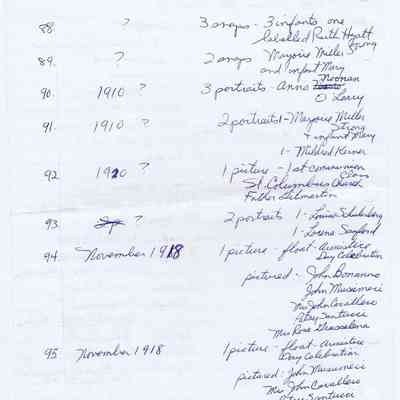 88. ? 3 snaps - 3 infants one
labelled Ruth Hyatt
Strong
89. ? 2 snaps Marjorie Miller
and infant Mary
90. 1910 ? 3 portraits - Anna Noonan
O'Leary
91. 1910 ? 2 portraits 1 - Marjorie Miller
Strong
+ infant Mary
1 - Mildred Kerner
92 1920 ? 1 picture - 1st communion
Class
St. Columbas Church
Father Gilmartin
93. ? 2 portraits 1 - Louise
1 - Lorene Sanford
94. November 1918 1 picture - float - Armistice
Day Celebration
pictured - John Bonanno
John Musumeci
Mrs John Cavallero
Patsy Santucci
Mrs Rose
95 November 1918 1 picture - float - Armistice
Day Celebration
pictured: John Musumeci
Mrs John Cavallero
Patsy Santucci